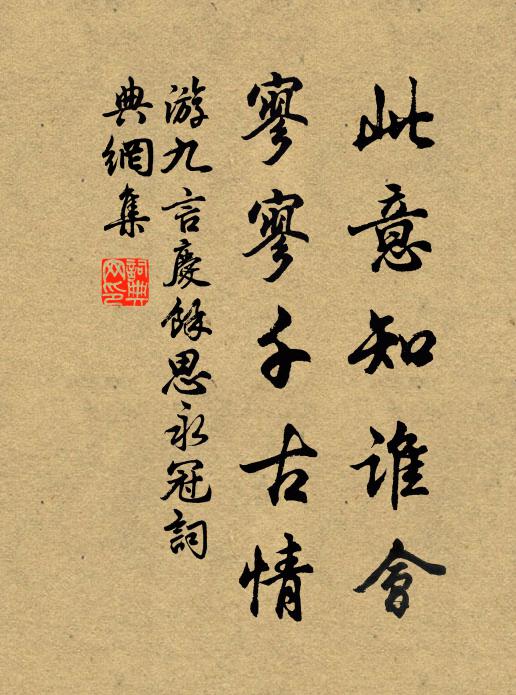 此意知谁會
寥寥千古情
游九言慶餘思永冠詞
典網集
詞典
网印